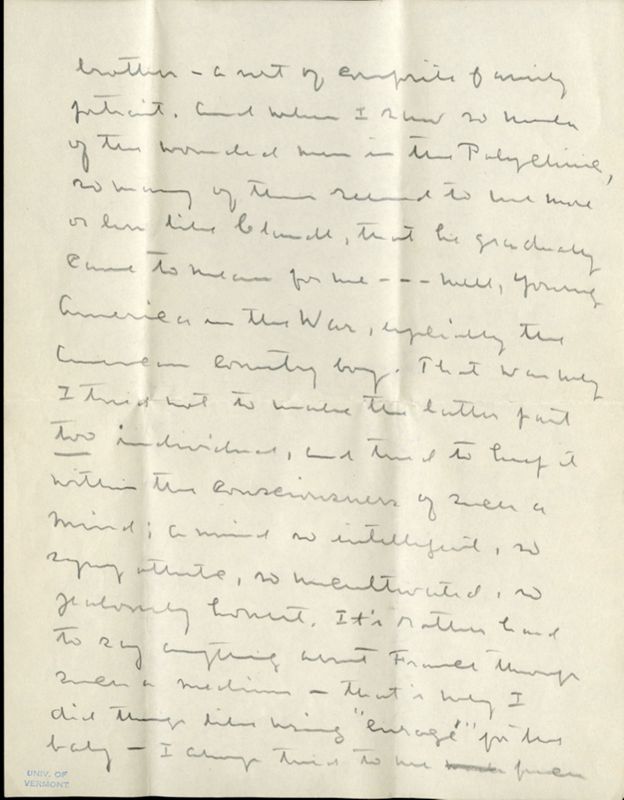 brother – a sort of composite family
portrait. And when I saw so much
of the wounded men in the Polyclinic,
so many of them seemed to me more
or less like Claude, that he gradually
came to mean for me --- well, Young
America in the War, especially the
American country boy. That was why
I tried not to make the latter part
too individual, and tried to keep it
within the consciousness of such a
mind; a mind so intelligent, so
sympathetic, so uncultivated, so
jealously honest. It's rather hard
to say anything about France through
such a medium – that's why I
did things like using "enragé" for the
baby – I always tried to use
UNIV. OF
VERMONT